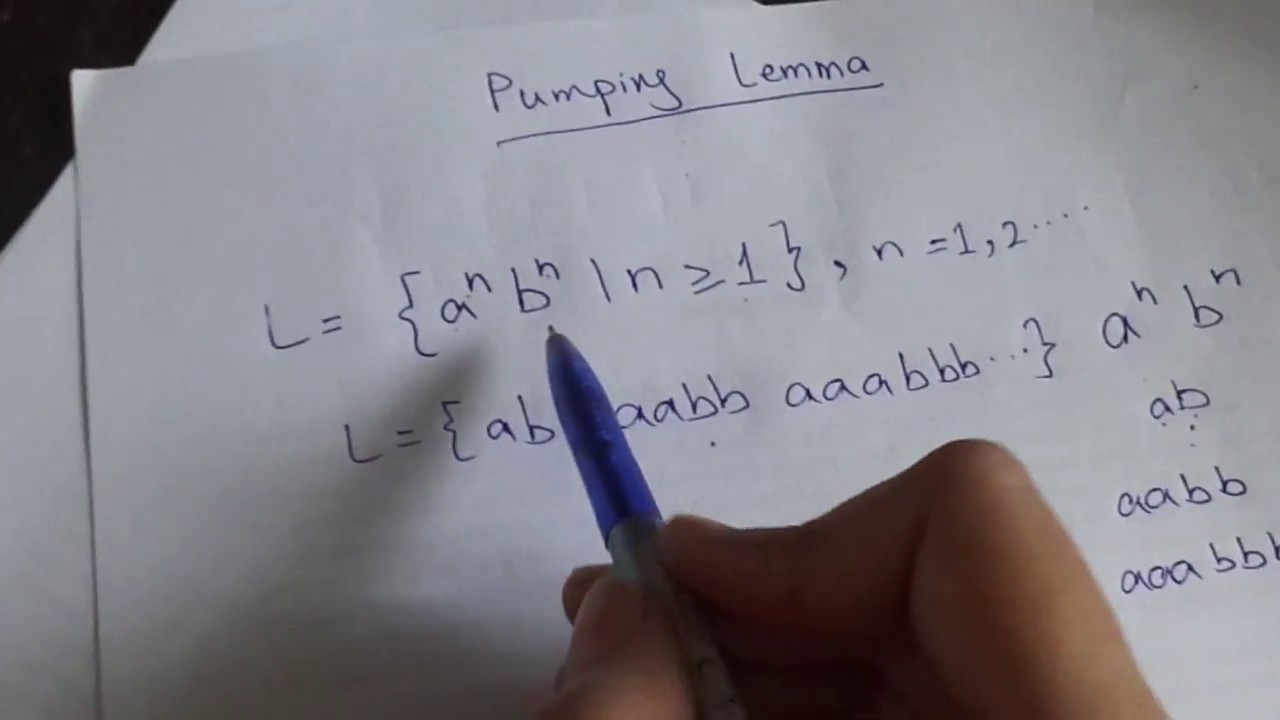 Pumping Lemma
L = {aⁿ bⁿ | n ≥ 1}, n = 1, 2 ....
L = {ab aabb aaabbb...}
aⁿ bⁿ
ab
aabb
aaabbb